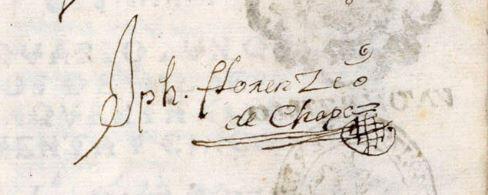 Jph. florenzio
de Chapa